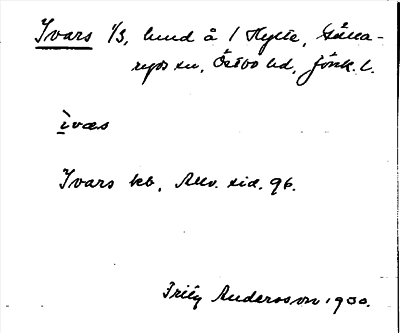 Ivars 1/3, lund å 1 Hylte, Källa-
ryds sn, Östbo hd, Jönk. l.
ìvas
Ivars kb, Alv. sid. 96.
Fritz Andersson 1930.